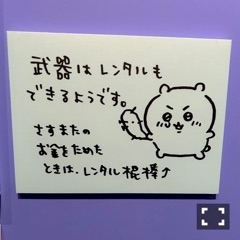 武器はレンタルも
できるようです。
さすまたの
お金をためた
ときは、レンタル棍棒↑